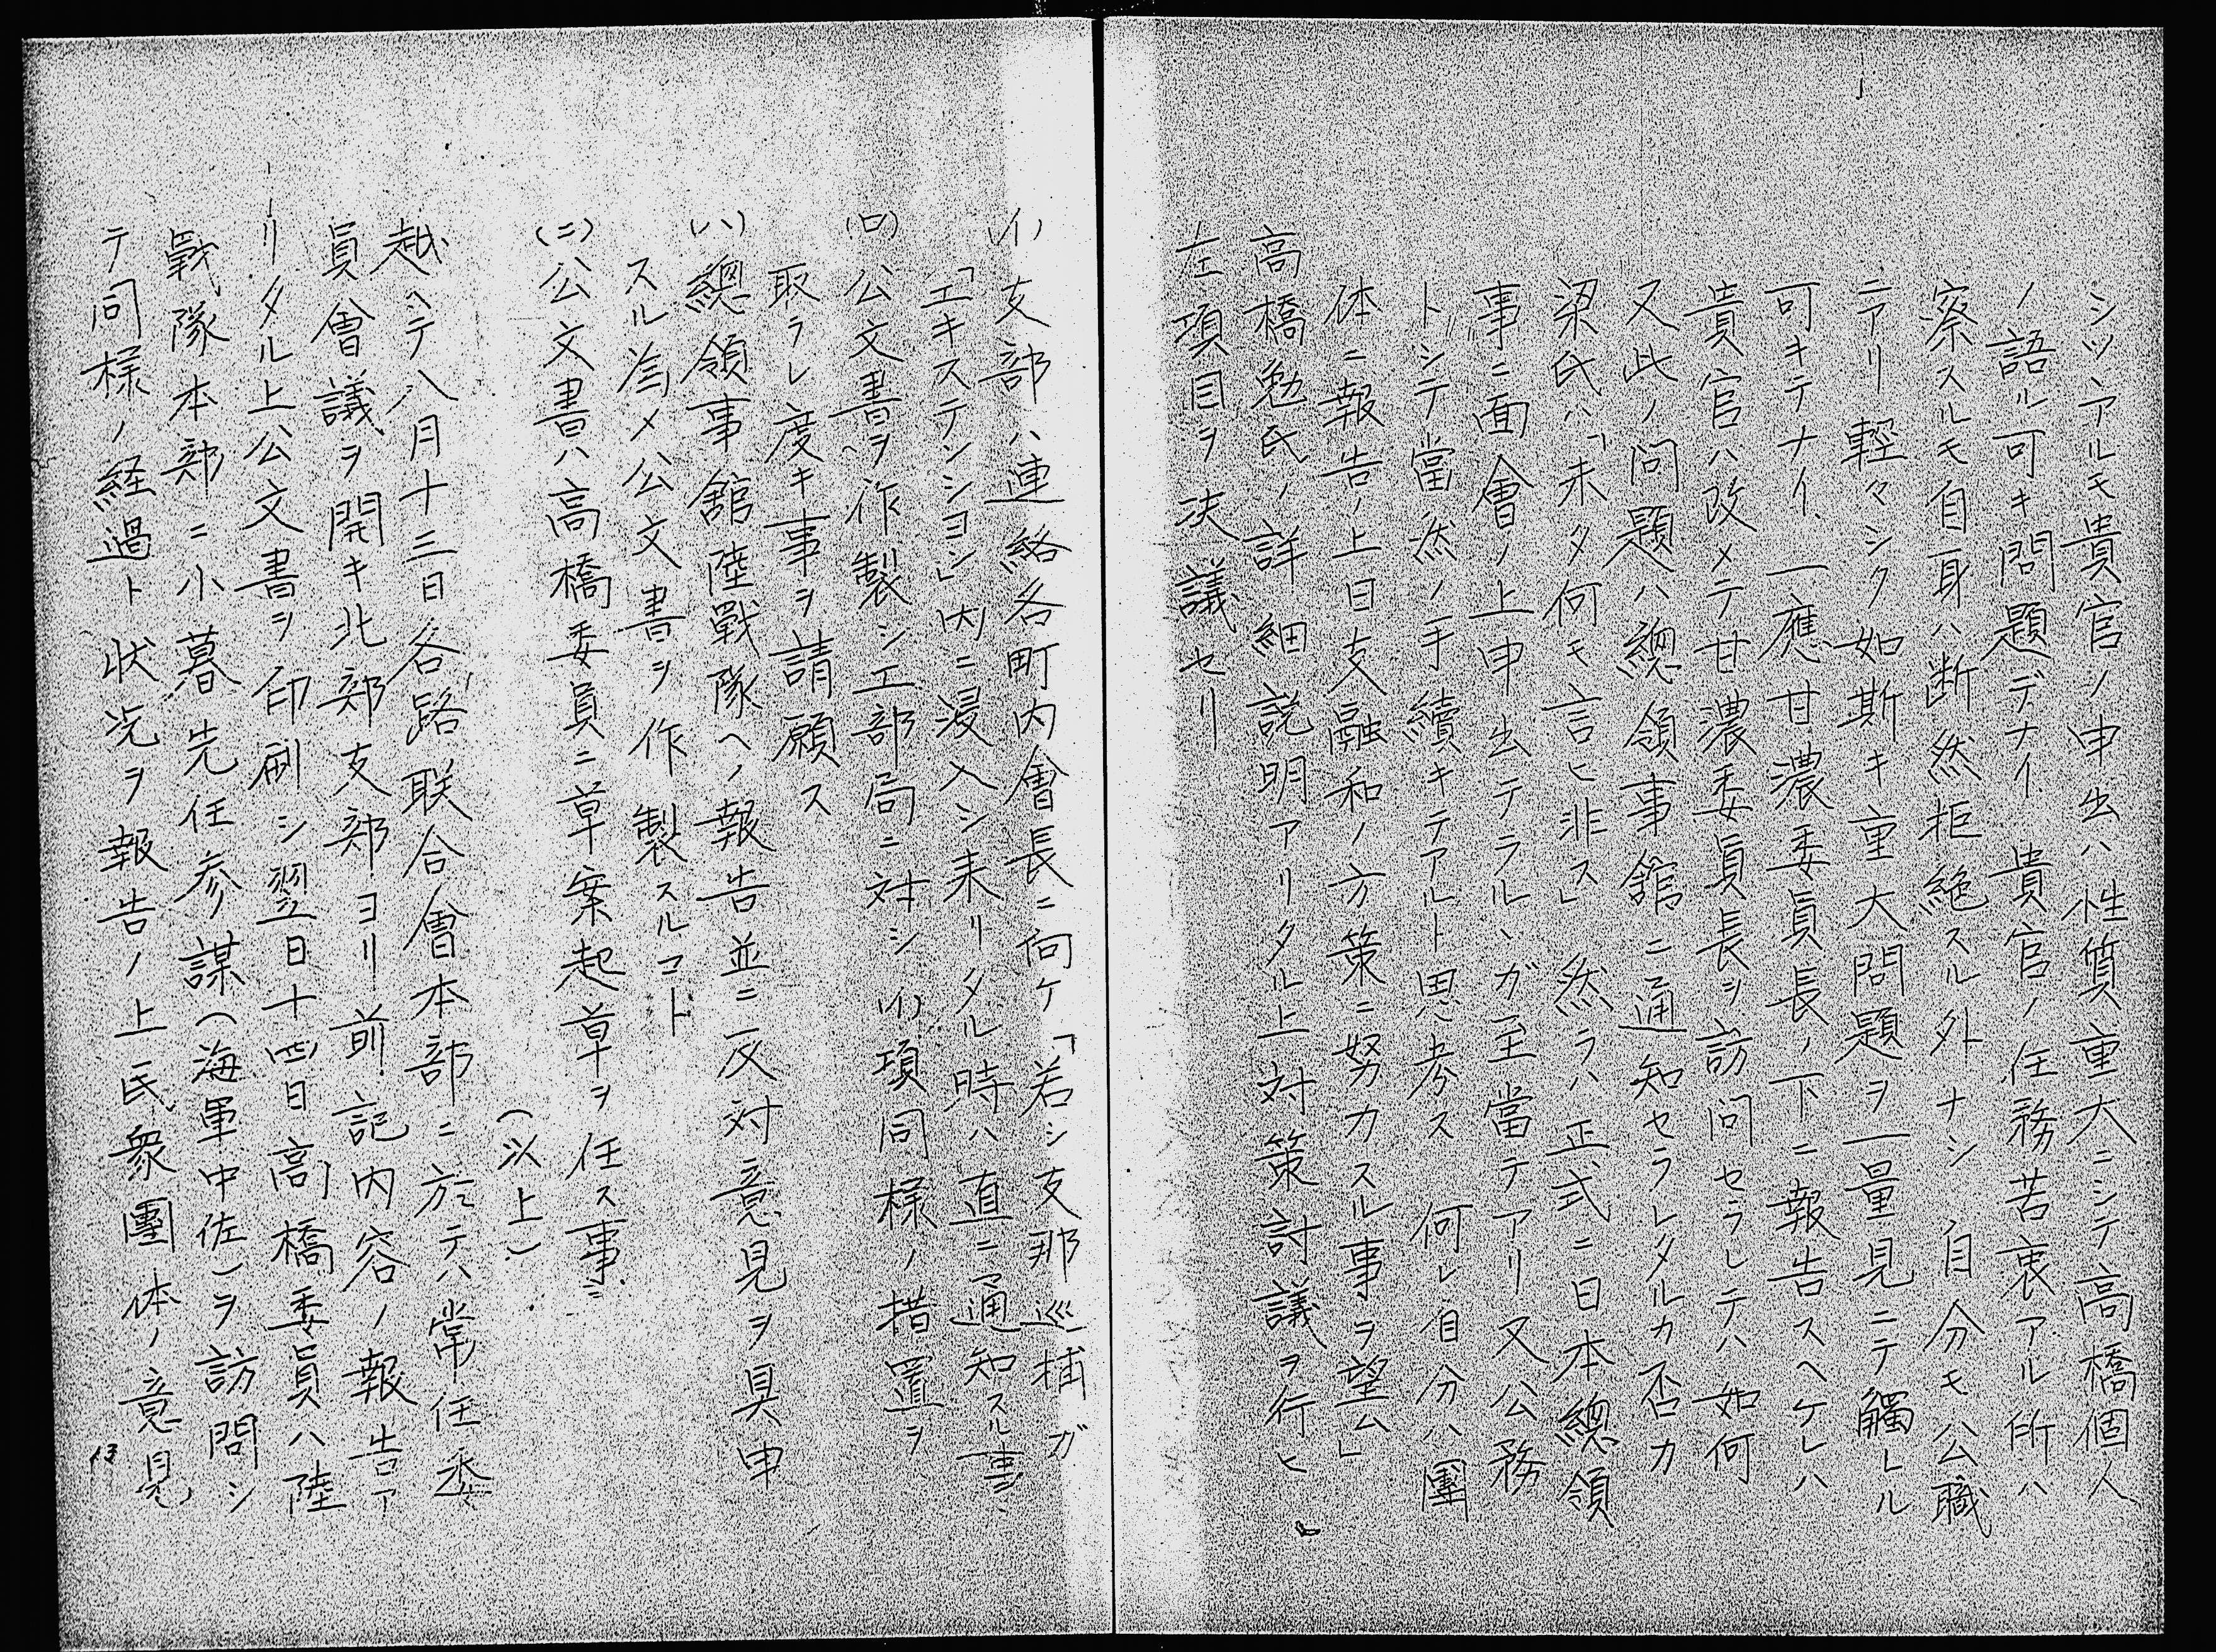 シツヽアルモ貴官ノ申出ハ性質重大ニシテ高橋個人
ノ語ル可キ問題デナイ、貴官ノ任務苦衷アル所ハ
察スルモ自身ハ断然拒絶スル外ナシ 自分モ公職
ニアリ軽々シク如斯キ重大問題ヲ一量見ニテ觸レル
可キテナイ、一應甘濃委員長ノ下ニ報告スヘケレハ
貴官ハ改メテ甘濃委員長ヲ訪问セラレテハ如何
又此ノ问題ハ總領事館ニ通知セラレタルカ否カ
梁氏ハ「未タ何モ言ヒ非ス」然ラハ正式ニ日本總領
事ニ面會ノ上申出テラルヽガ至當テアリ又公務
トシテ當然ノ手續キテアルト思考ス 何レ自分ハ團
体ニ報告ノ上日支融和ノ方策ニ努力スル事ヲ望ム」
高橋勉氏ノ詳細説明アリタル上対策討議ヲ行ヒ
左項目ヲ決議セリ
(イ)支部ハ連絡各町内會長ニ向ケ「若シ支那巡捕ガ
「エキステンシヨン」内ニ浸入シ来リタル時ハ直ニ通知スル事」
(ロ)公文書ヲ作製シ工部局ニ対シ(イ)項同様ノ措置ヲ
取ラレ度キ事ヲ請願ス
(ハ)總領事舘陸戰隊ヘノ報告並ニ反対意見ヲ具申
スル為メ公文書ヲ作製スルコト
(ニ)公文書ハ高橋委員ニ草案起草ヲ任ス事
(以上)
越ヘテ八月十三日各路联合會本部ニ於テハ常任委
員會議ヲ開キ北部支部ヨリ前記内容ノ報告ア
リタル上公文書ヲ印刷シ翌日十四日高橋委員ハ陸
戰隊本部ニ小暮先任参謀(海軍中佐)ヲ訪問シ
テ同様ノ経過ト状况ヲ報告ノ上民衆團体ノ意見
13